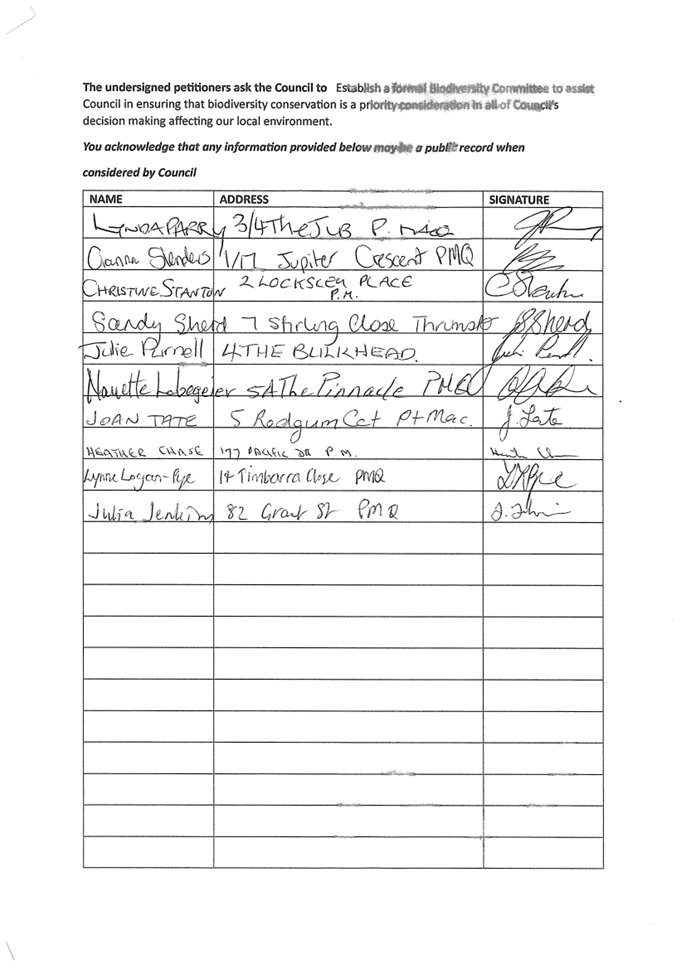 The undersigned petitioners ask the Council to Establish a formal Biodiversity Committee to assist
Council in ensuring that biodiversity conservation is a priority consideration in all of Council's
decision making affecting our local environment.
You acknowledge that any information provided below may be a public record when
considered by Council
NAME ADDRESS SIGNATURE
LYNDA PARRY 3/4 The Jib P. Mac
Slenders 1/17 Jupiter Crescent PMQ
CHRISTINE STANTON 2 LOCKSLEY PLACE P.M. CStanton
Sandy Sherd 7 Stirling Close Thrumster SSherd
Julie Purnell 4 THE BULKHEAD.
Nanette Lobegeier 5A The Pinnacle PMQ
JOAN TATE 5 Redgum Cct Pt Mac. J. Tate
HEATHER CHASE 177 PACIFIC DR P.M.
Lynne Logan-Pye 14 Timbarra Close PMQ
Julia Jenkins 82 Grant St PMQ